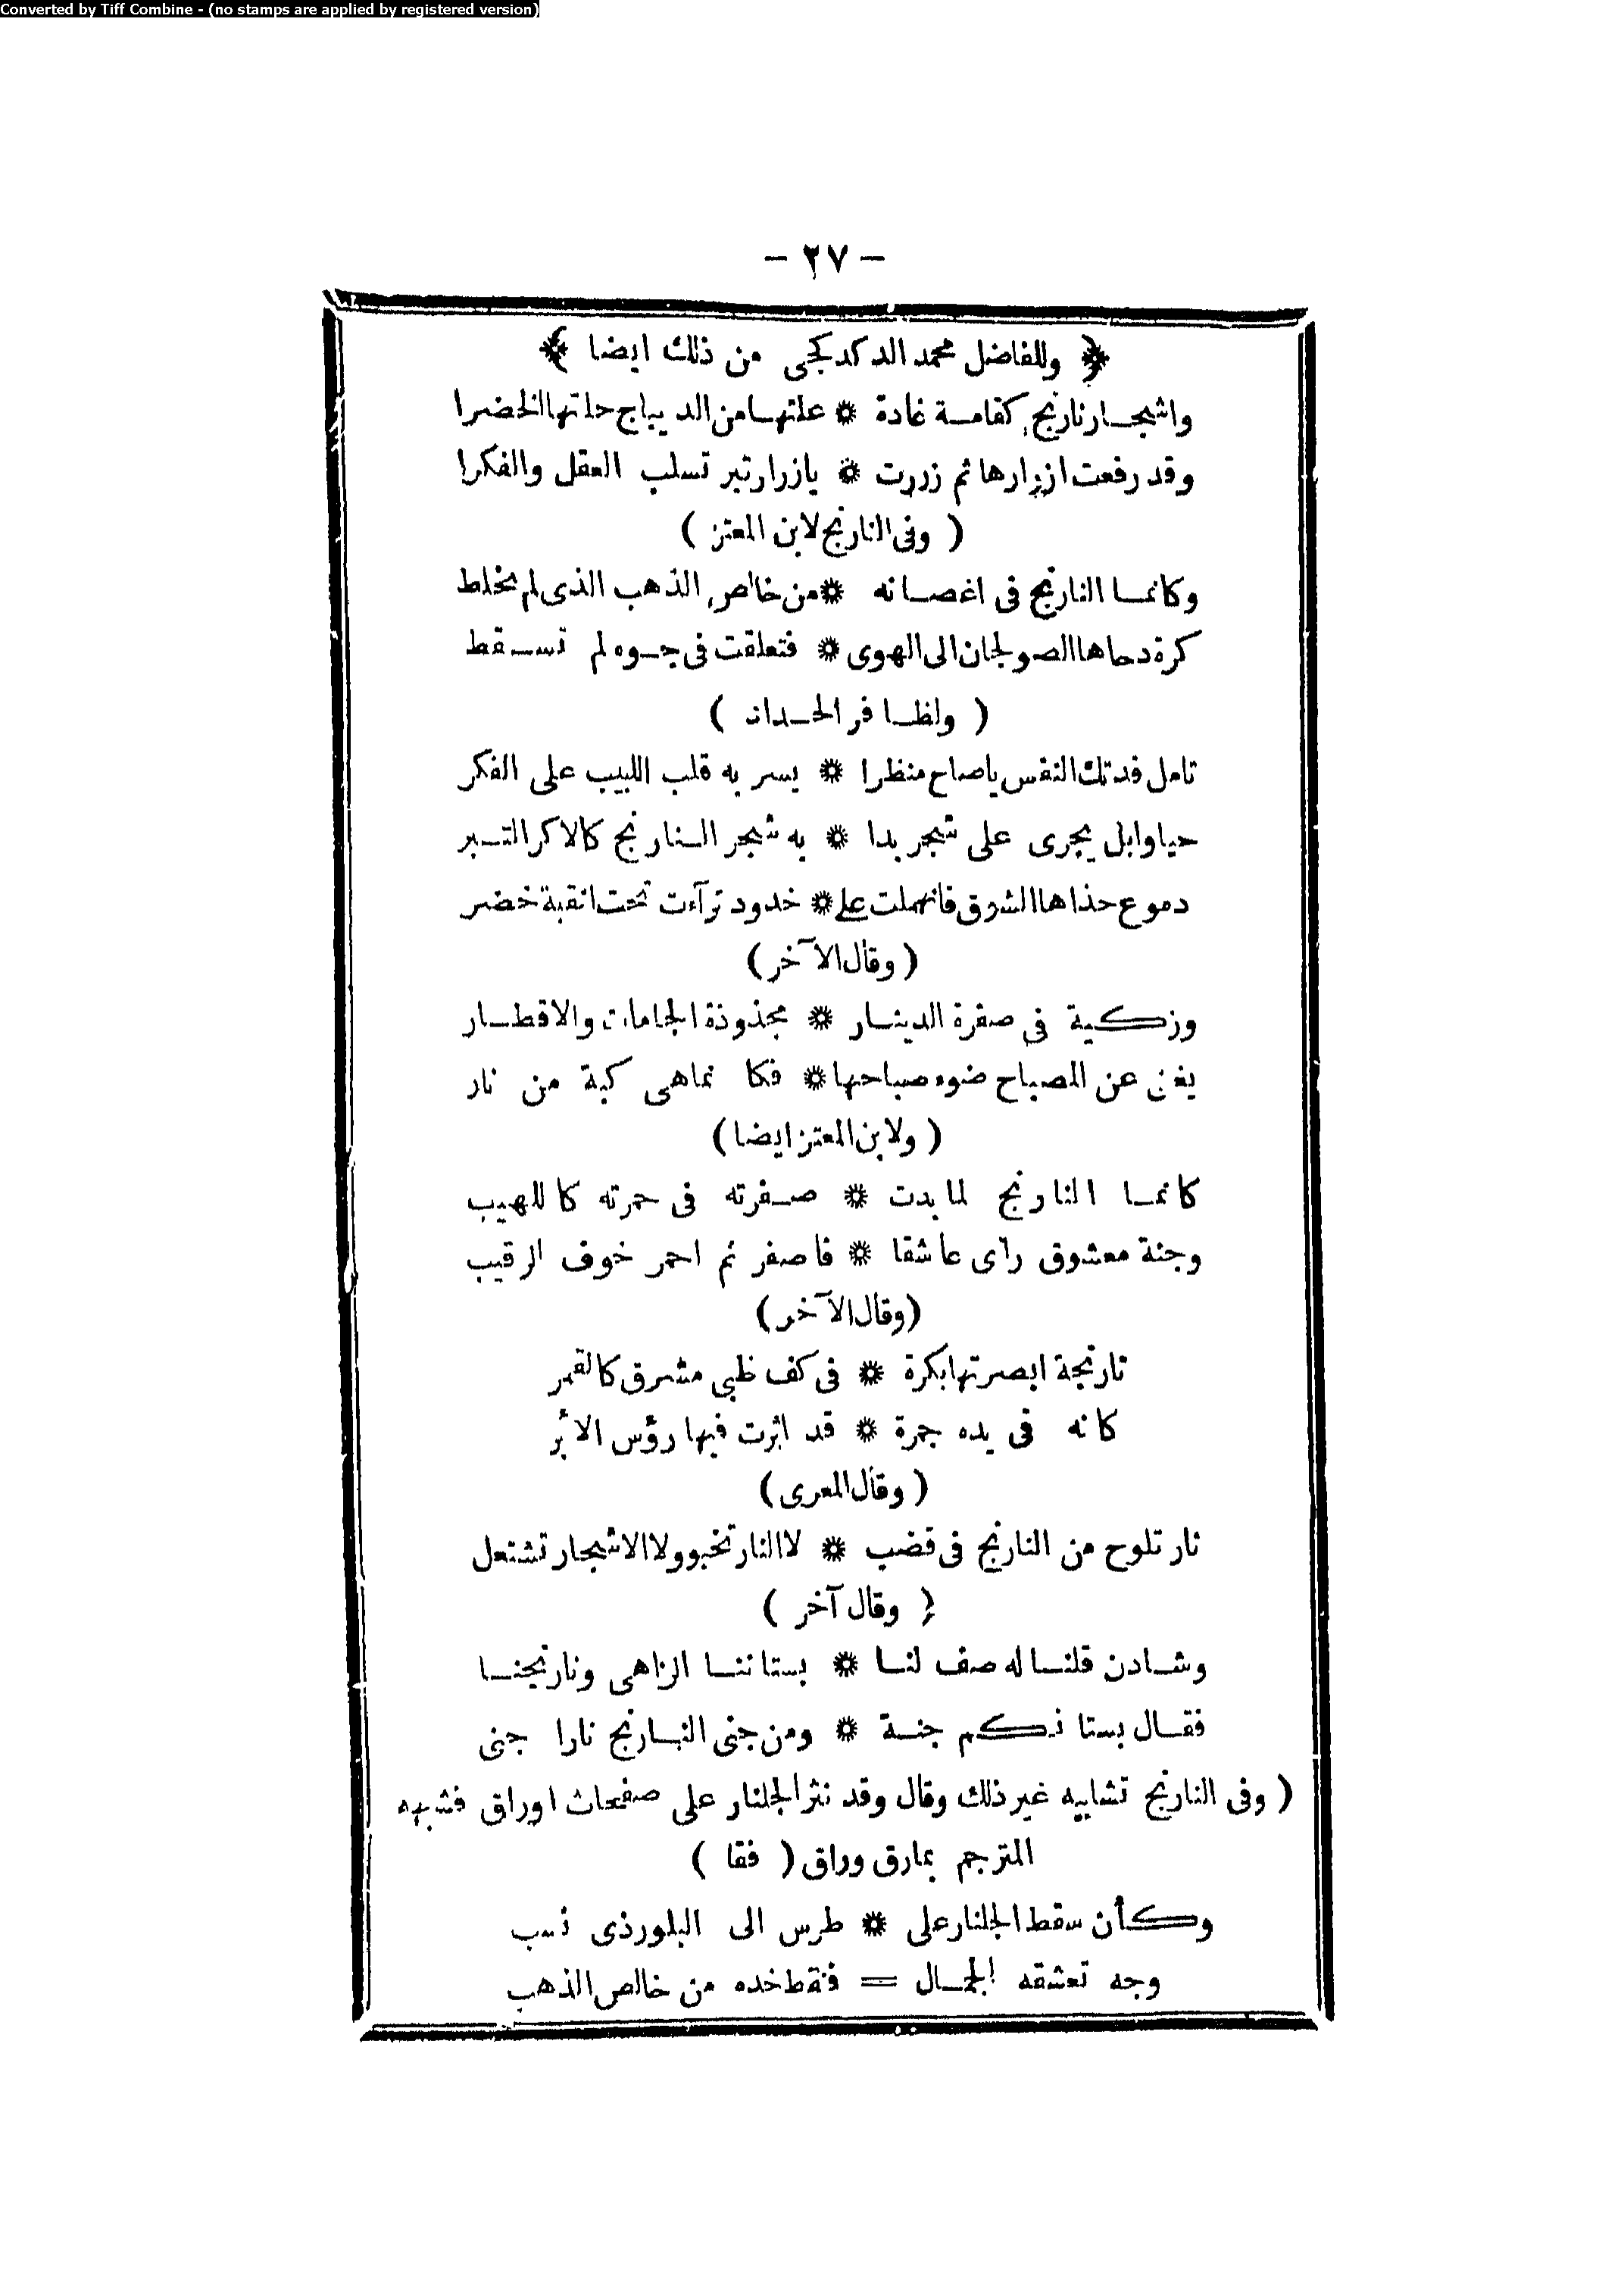 Converted by Tiff Combine - (no stamps are applied by registered version)
- ٢٧ -
﴿ وللفاضل محمد الدكدكجى من ذلك ايضا ﴾
واشجار نارنج كقامة غادة * علتها من الديباج حلتها الخضرا
وقد رفعت ازرارها ثم زررت * بازرار تبر تسلب العقل والفكرا
( وفى النارنج لابن المعتز )
وكانما النارنج فى اغصانه * من خالص الذهب الذى لم يخلط
كرة دحاها الصولجان الى الهوى * فتعلقت فى جوه لم تسقط
( ولظافر الحداد )
تامل فدتك النفس ياصاح منظرا * يسر به قلب اللبيب على الفكر
حيا وابل يجرى على شجر بدا * به شجر النارنج كالاكر التبر
دموع حذاها الشوق فانهملت على * خدود ترآءت تحت انقبة خضر
( وقال الآخر )
وزكية فى صفرة الدينار * مجذوذة الجامات والاقطار
يغنى عن المصباح ضوء صباحها * فكانما هى كبة من نار
( ولابن المعتز ايضا )
كانما النارنج لما بدت * صفرته فى حمرته كاللهيب
وجنة معشوق رآى عاشقا * فاصفر ثم احمر خوف الرقيب
( وقال الآخر )
نارنجة ابصرتها بكرة * فى كف ظبى مشرق كالقمر
كانه فى يده جمرة * قد اثرت فيها رؤس الابر
( وقال المعرى )
نار تلوح من النارنج فى قضب * لا النار تخبو ولا الاشجار تشتعل
( وقال آخر )
وشادن قلنا له صف لنا * بستاننا الزاهى ونارنجنا
فقال بستانكم جنة * ومن جنى النارنج نارا جنى
( وفى النارنج تشابيه غير ذلك وقال وقد نثر الجلنار على صفحات اوراق فشبهه
المترجم بمارق وراق ( فقا )
وكأن سقط الجلنار على * طرس الى البلور ذى نسب
وجه تعشقه الجمال = فنقط خده من خالص الذهب